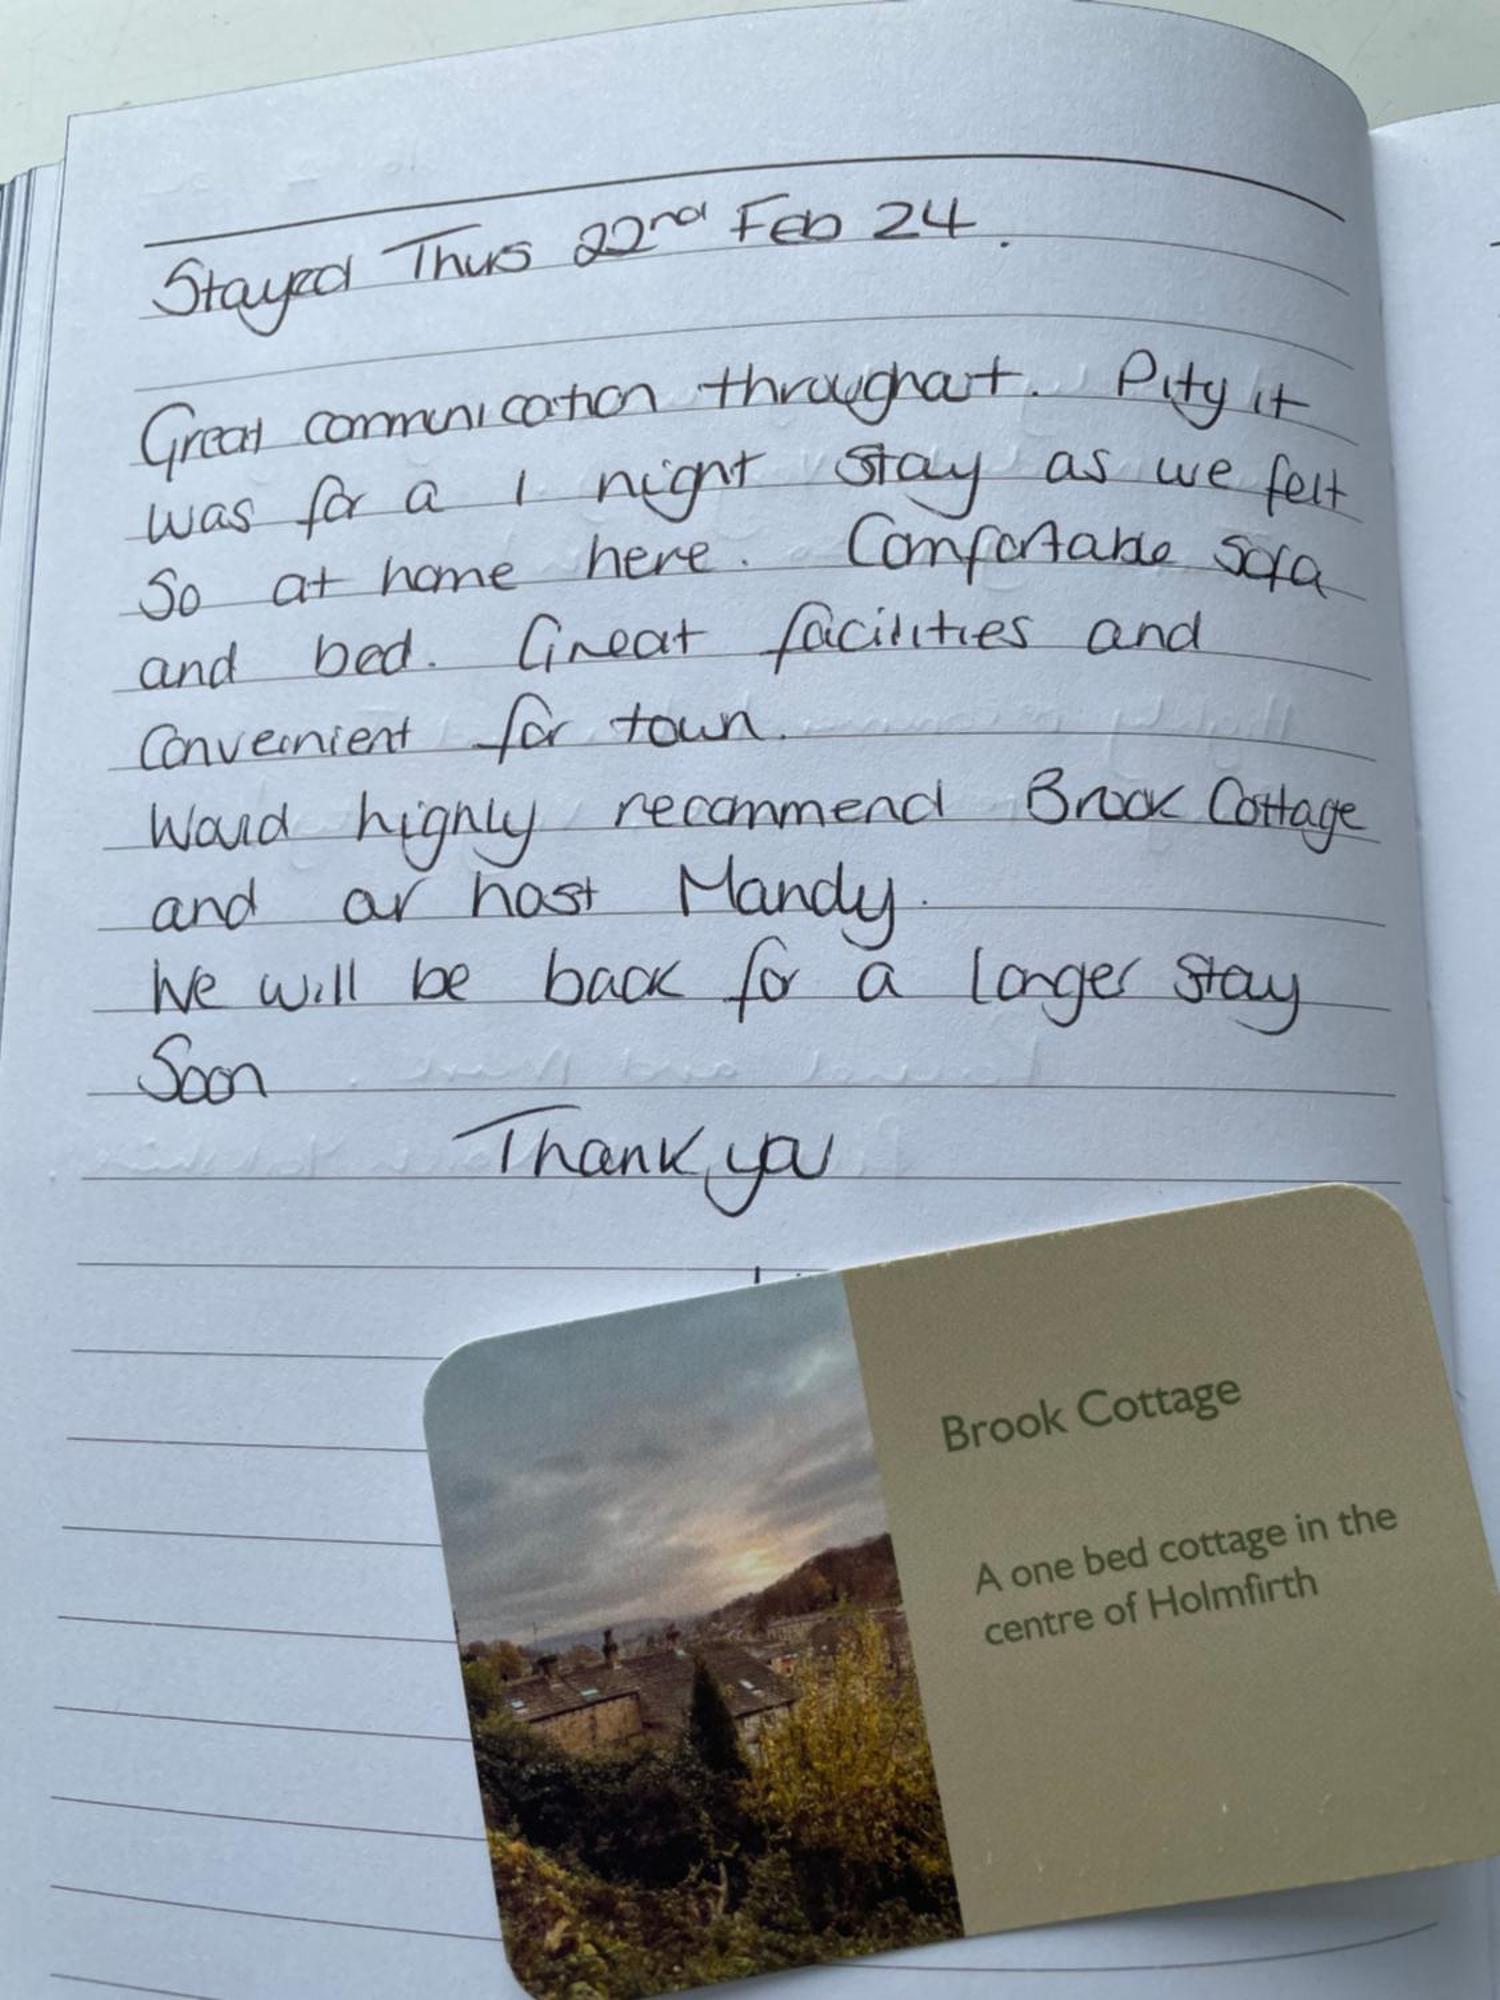 Stayed Thurs 22nd Feb 24.
Great communication throughout. Pity it
was for a 1 night stay as we felt
so at home here. Comfortable sofa
and bed. Great facilities and
convenient for town.
Would highly recommend Brook Cottage
and our host Mandy.
We will be back for a longer stay
Soon
Thank you
Brook Cottage
A one bed cottage in the
centre of Holmfirth